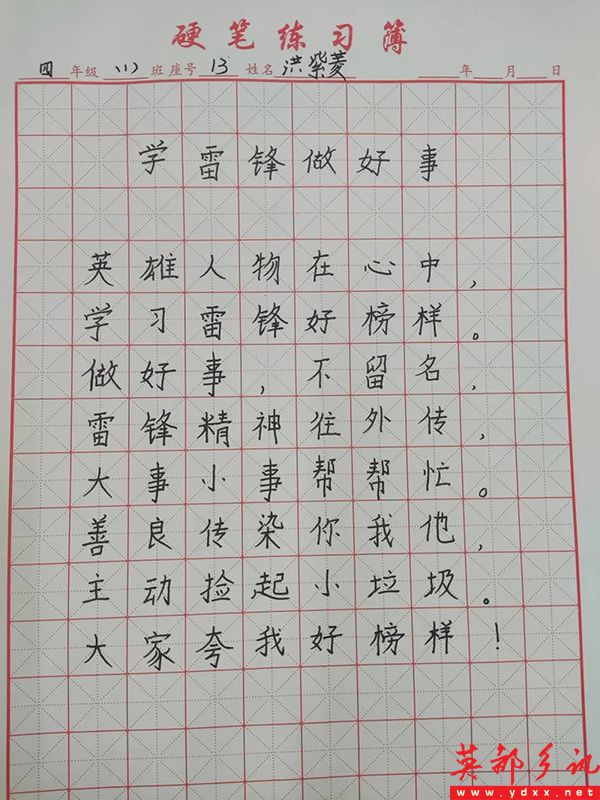 硬笔练习簿
四年级(1)班座号13 姓名洪紫菱 年 月 日
学雷锋做好事
英雄人物在心中，
学习雷锋好榜样。
做好事，不留名，
雷锋精神往外传，
大事小事帮帮忙。
善良传染你我他，
主动捡起小垃圾。
大家夸我好榜样！
英都乡讯
www.ydxx.net